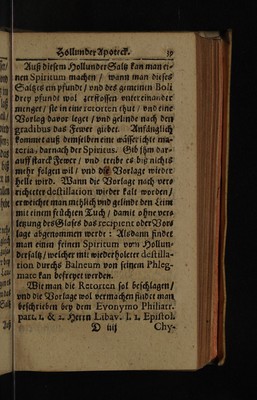 Hollunder Apoteck. 39
Auß diesem Hollunder Saltz kan man ei-
nen Spiritum machen / wann man dieses
Saltzes ein pfundt / vnd des gemeinen Boli
drey pfundt wol zerstossen vntereinander
menget / sie in eine retorten thut / vnd eine
Vorlag davor leget / vnd gelinde nach den
gradibus das Fewer giebet. Anfänglich
kommet auß demselben eine wässerichte ma-
teria, darnach der Spiritus. Gib ihm dar-
auff starck Fewer / vnd treibe es biß nichts
mehr folgen wil / vnd die Vorlage wieder
helle wird. Wann die Vorlage nach ver-
richteter destillation wieder kalt worden /
erweichet man mählich vnd gelinde den Leim
mit einem feuchten Tuch / damit ohne ver-
letzung des Glases das recipient oder Vor-
lage abgenommen werde: Alsdann findet
man einen feinen Spiritum vom Hollun-
dersaltz / welcher mit wiederholeter destilla-
tion durchs Balneum von seinem Phleg-
mate kan befreyet werden.
Wie man die Retorten sol beschlagen /
vnd die Vorlage wol vermachen findet man
beschrieben bey dem Evonymo Philiatr.
part. 1. & 2. Herrn Libav. l. 1. Epistol.
D iiij Chy-